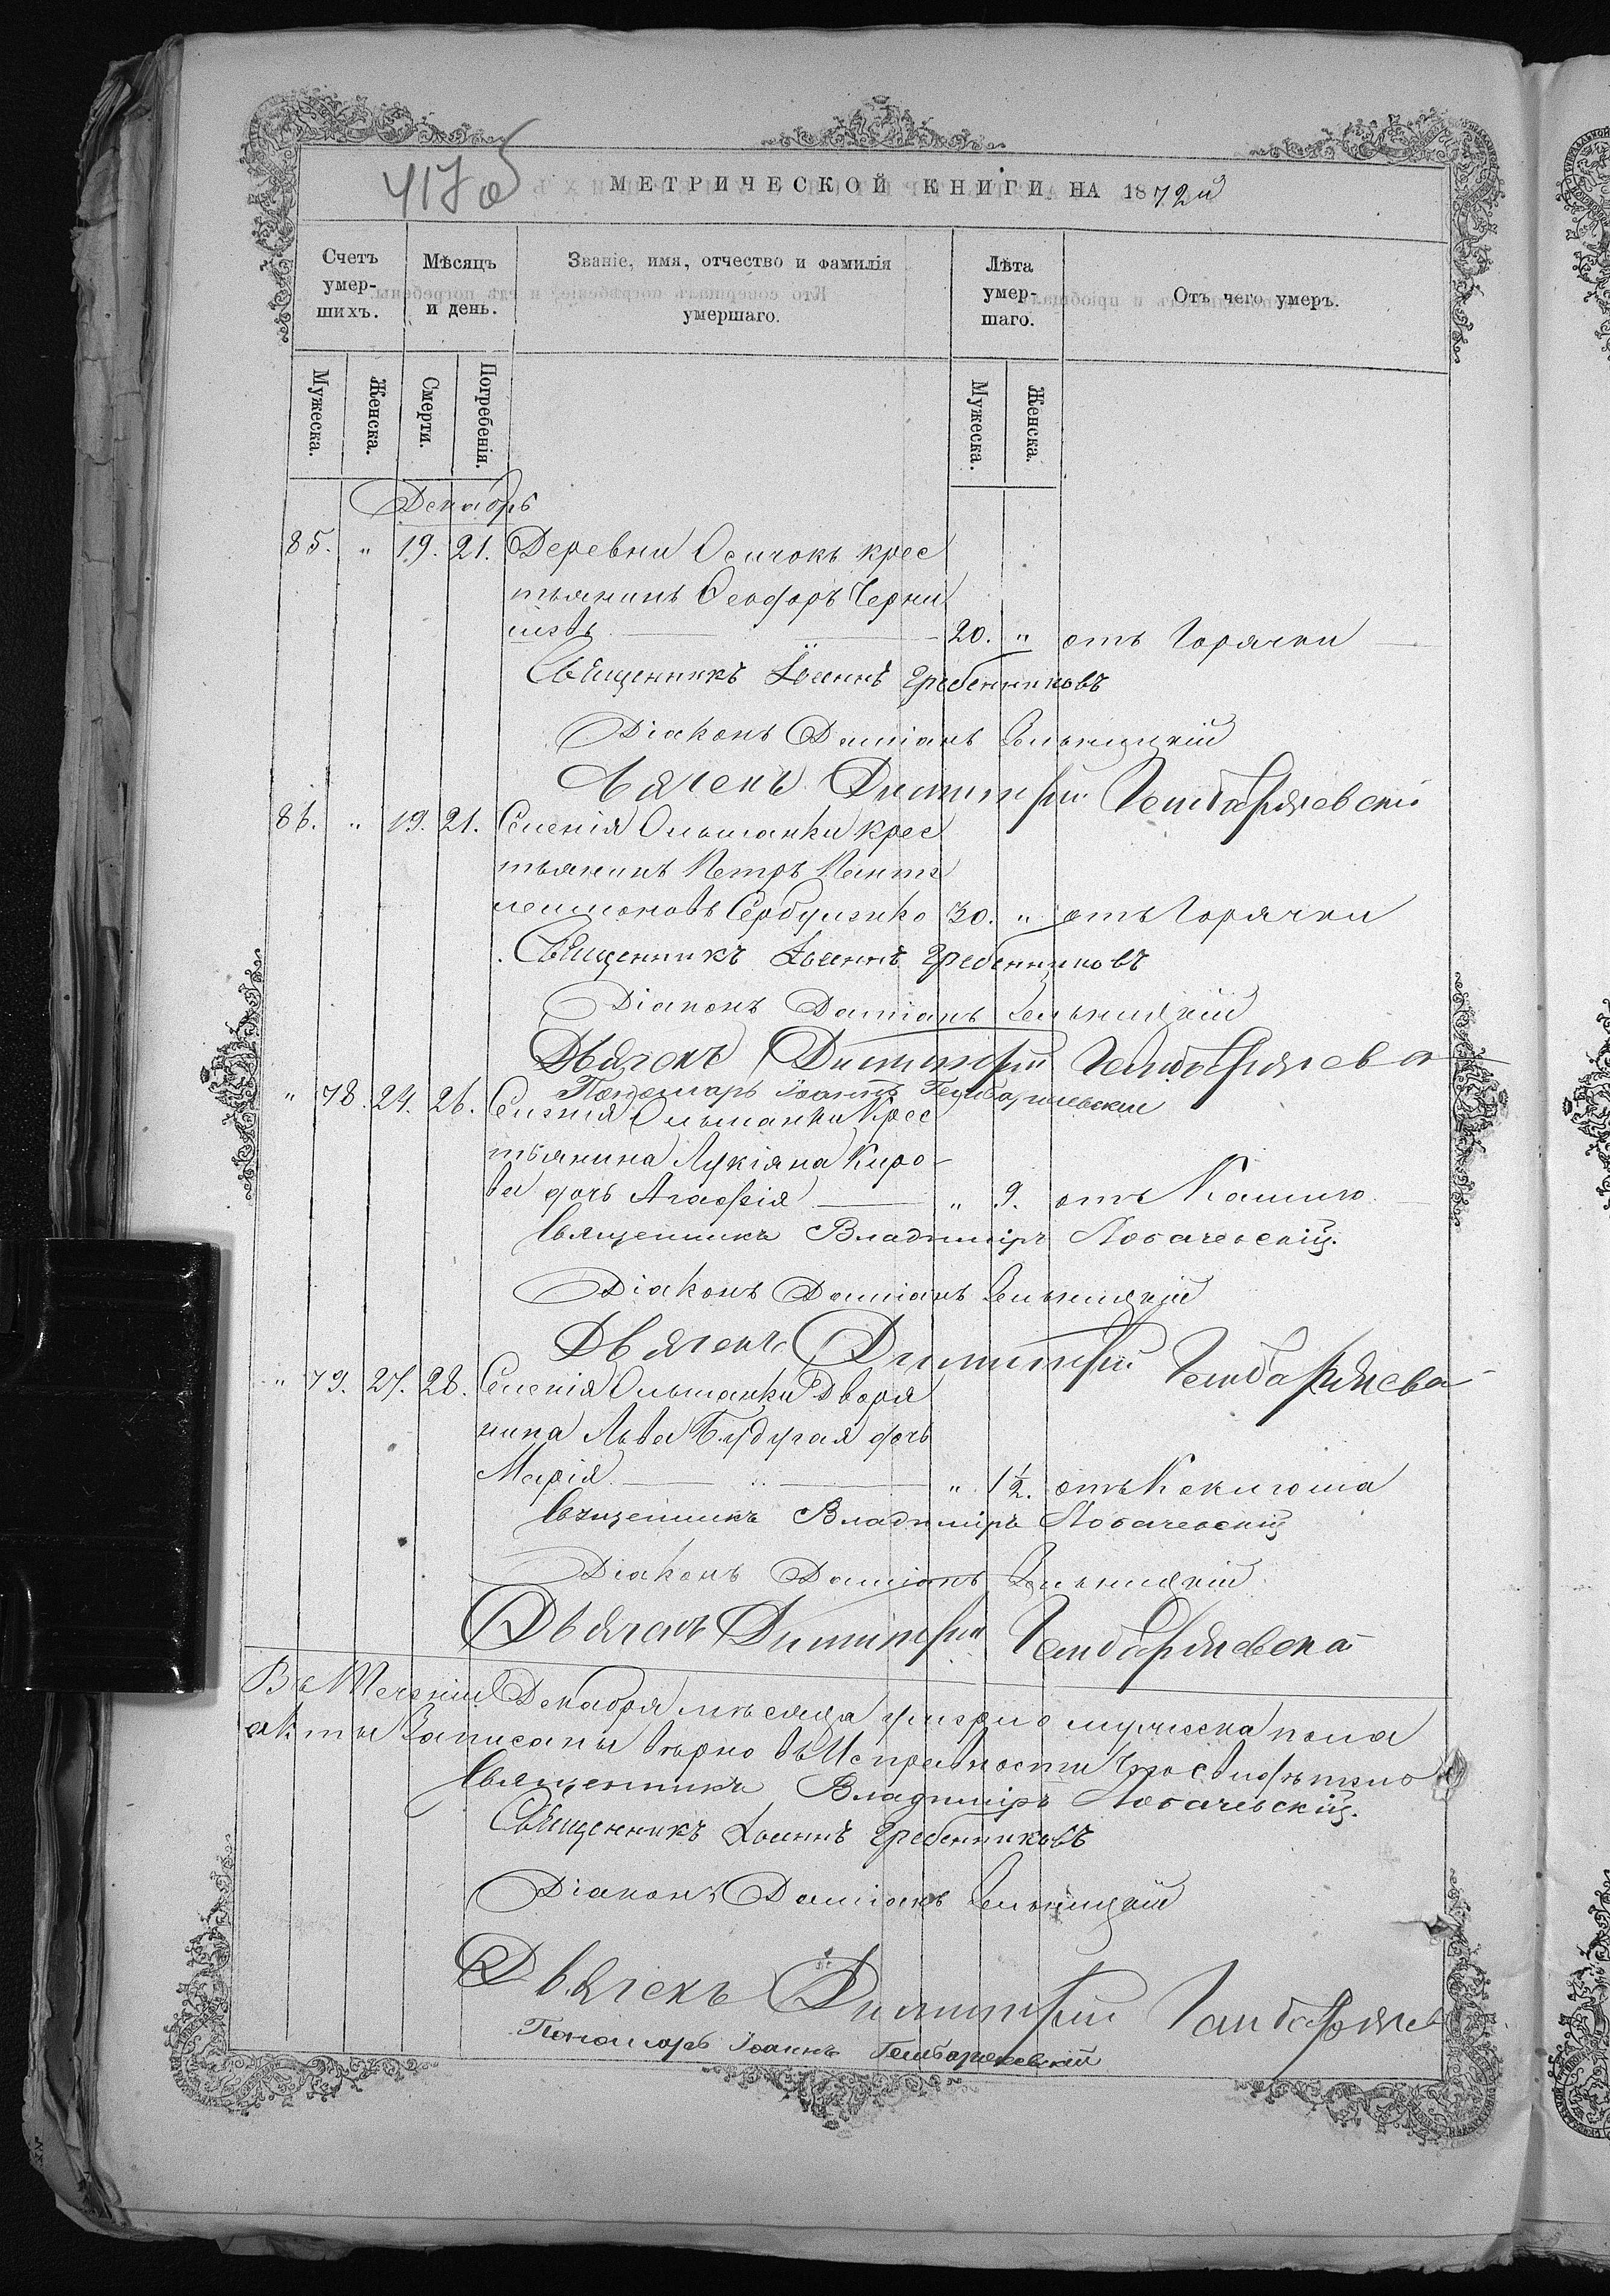 МЕТРИЧЕСКОЙ КНИГИ НА 1872й
Счетъ умершихъ.
Мѣсяцъ и день.
Званіе, имя, отчество и фамилія умершаго.
Лѣта умершаго.
Отъ чего умеръ.
Мужеска.
Женска.
Смерти.
Погребенія.
Мужеска.
Женска.
Декабрь
85. " 19. 21. Деревни Осичокъ крес
тьянинъ Ѳеодоръ Черни
20. " отъ Горячки
Священникъ Іоаннъ Гребенниковъ
Діаконъ Даміанъ
Дьячекъ Димитрій
86. " 19. 21. Селенія Ольшанки крес
тьянинъ Петръ Панте
леимоновъ Сербуленко 30. " отъ Горячки
Священникъ Іоаннъ Гребенниковъ
Діаконъ Даміанъ
Дьячекъ Димитрій
Пономарь Іоаннъ
" 78. 24. 26. Селенія Ольшанки Крес
тьянина Лукіяна Киро-
ва дочь Агафія " 9. отъ Кашлю
Священникъ Владиміръ Лобачевскій.
Діаконъ Даміанъ
Дьячекъ Димитрій
" 79. 27. 28. Селенія Ольшанки Дворя
нина Льва дочь
Марія " 1½. отъ Коклюша
Священникъ Владиміръ Лобачевскій
Діаконъ Даміанъ
Дьячекъ Димитрій
Въ Теченіи Декабря мѣсяца мужеска пола
акты Записаны вѣрно въ Исправности
Священникъ Владиміръ Лобачевскій.
Священникъ Іоаннъ Гребенниковъ
Діаконъ Даміанъ
Дьячекъ Димитрій
Пономарь Іоаннъ